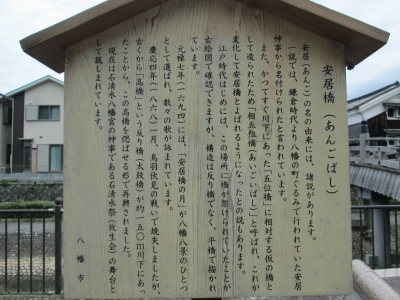 安居橋(あんごばし)
安居(あんご)の名の由来には、諸説があります。
一説では、鎌倉時代より八幡の町ぐるみで行われていた安居
神事から名付けられたと言われています。
また、かつてすぐ川下にあった「五位橋」に相対する仮の橋と
して造られたため「相五位橋(あいごいばし)」と呼ばれ、これが
変化して安居橋とよばれるようになったとの説もあります。
江戸時代はじめには、この場所に橋が架けられていたことが
古絵図で確認できますが、構造は反り橋でなく、平橋で描かれ
ています。
元禄七年(一六九四)には、「安居橋の月」が八幡八景のひとつ
として選ばれ、数々の歌が詠まれています。
慶応四年(一八六八)一月、鳥羽伏見の戦いで焼失しましたが、
古くから「高橋」という反り橋(太鼓橋)が約一五〇m川下にあっ
たことから、この高橋を偲ばせる形で再興されました。
現在は石清水八幡宮の神事である石清水祭(放生会)の舞台と
して親しまれています。
八幡市